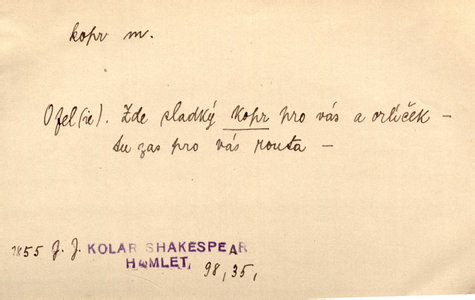 kopr m.
Ofel(ie). Zde sladký kopr pro vás a orlíček –
tu zas pro vás routa –
1855 J. J. KOLAR SHAKESPEAR
HAMLET, 98, 35,